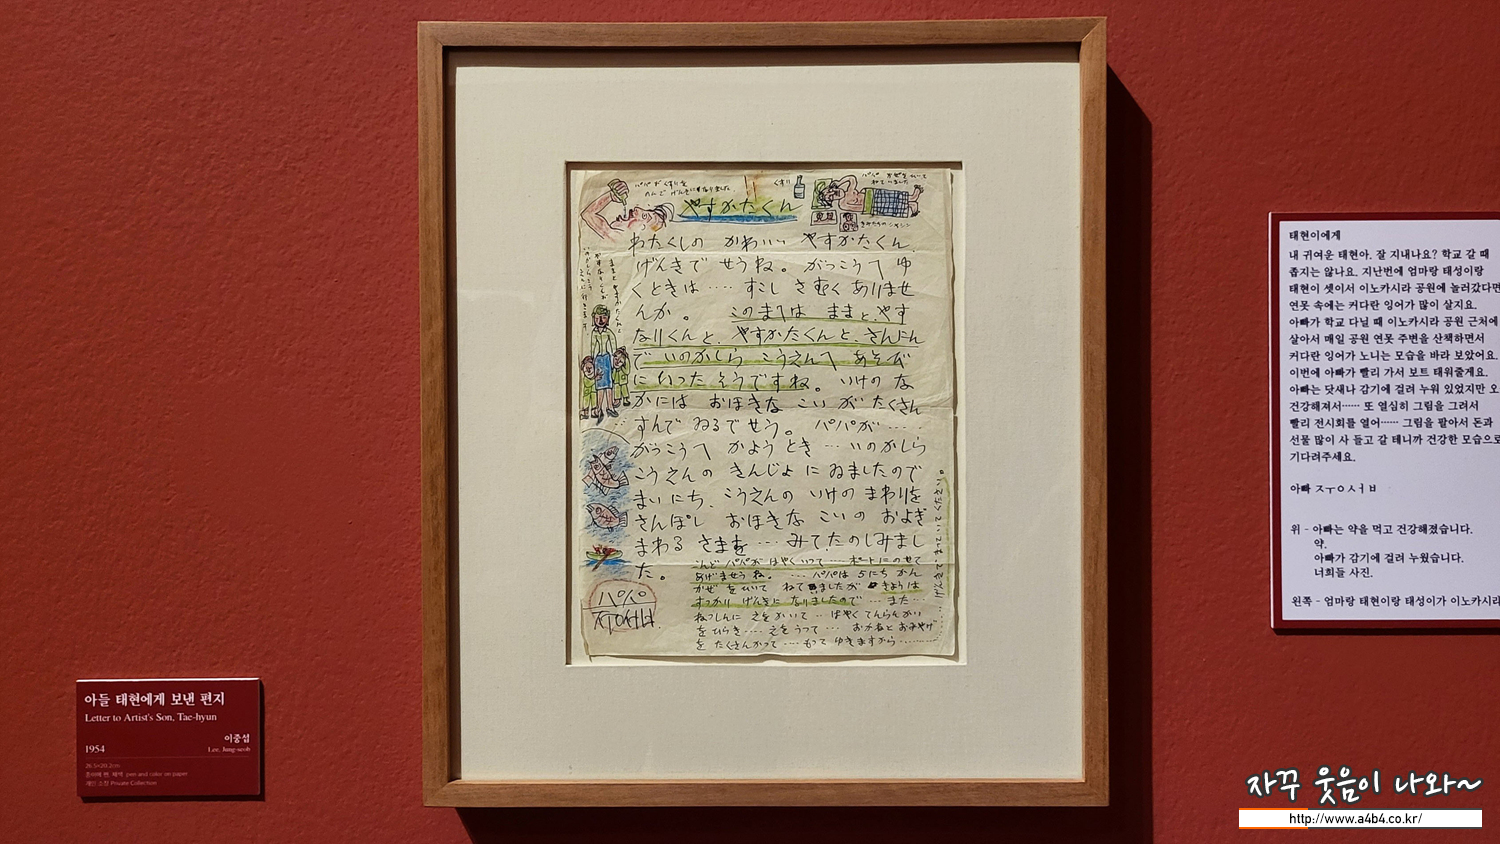 パパがくすりを
のんで げんきになりました。
くすり
パパ かぜをひいて
ねていました
やすかたくん
わたくしの かわいい やすかたくん。
げんきで せうね。 がっこうへ ゆ
くときは ‥‥ すこし さむく ありませ
んか。 このまえは ままと やす
なりくんと、やすかたくんと、さんにん
で いのかしら こうえんへ あそび
に いった そうですね。 いけの な
かには おほきな こい が たくさん
すんで ゐるで せう。 パパが ‥‥
がっこうへ かよう とき … いのかしら
こうえんの きんじょ に ゐましたので
まいにち、こうえんの いけの まわりを
さんぽし おほきな こいの およぎ
まわる さまを … みて、たのしみまし
た。
こんど パパが はやく いって … ボートに のせて
あげませうね。 ‥‥ パパは 5にち かん
かぜ を ひいて ねて ましたが きょうは
すっかり げんきに なりましたので … また …
ねっしんに えを かいて ‥ はやく てんらんかい
を ひらき ‥‥ えを うって ‥‥ おかねと おみやげ
を たくさん かって ‥‥ もって ゆきますから
げんきで まっていて ください。
パパ
ㅈㅜㅇㅅㅓㅂ
아들 태현에게 보낸 편지
Letter to Artist's Son, Tae-hyun
이중섭
1954
Lee, Jung-seob
26.5×20.2cm
종이에 펜, 채색 pen and color on paper
개인 소장 Private Collection
태현이에게
내 귀여운 태현아. 잘 지내나요? 학교 갈 때
춥지는 않나요. 지난번에 엄마랑 태성이랑
태현이 셋이서 이노카시라 공원에 놀러갔다면
연못 속에는 커다란 잉어가 많이 살지요.
아빠가 학교 다닐 때 이노카시라 공원 근처에
살아서 매일 공원 연못 주변을 산책하면서
커다란 잉어가 노니는 모습을 바라 보았어요.
이번에 아빠가 빨리 가서 보트 태워줄게요.
아빠는 닷새나 감기에 걸려 누워 있었지만 오
건강해져서…… 또 열심히 그림을 그려서
빨리 전시회를 열어…… 그림을 팔아서 돈과
선물 많이 사 들고 갈 테니까 건강한 모습으로
기다려주세요.
아빠 ㅈㅜㅇㅅㅓㅂ
위 - 아빠는 약을 먹고 건강해졌습니다.
약.
아빠가 감기에 걸려 누웠습니다.
너희들 사진.
왼쪽 - 엄마랑 태현이랑 태성이가 이노카시라
자꾸 웃음이 나와~
http://www.a4b4.co.kr/